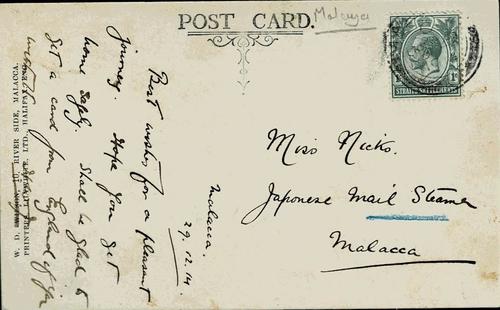 POST CARD.
Malaya
STRAITS SETTLEMENTS
Best wishes for a pleasant
journey. Hope you get
home safely. Shall be glad to
get a card from England if you
Malacca.
29.12.14
Miss Nicks.
Japanese Mail Steamer
Malacca
RIVER SIDE, MALACCA.